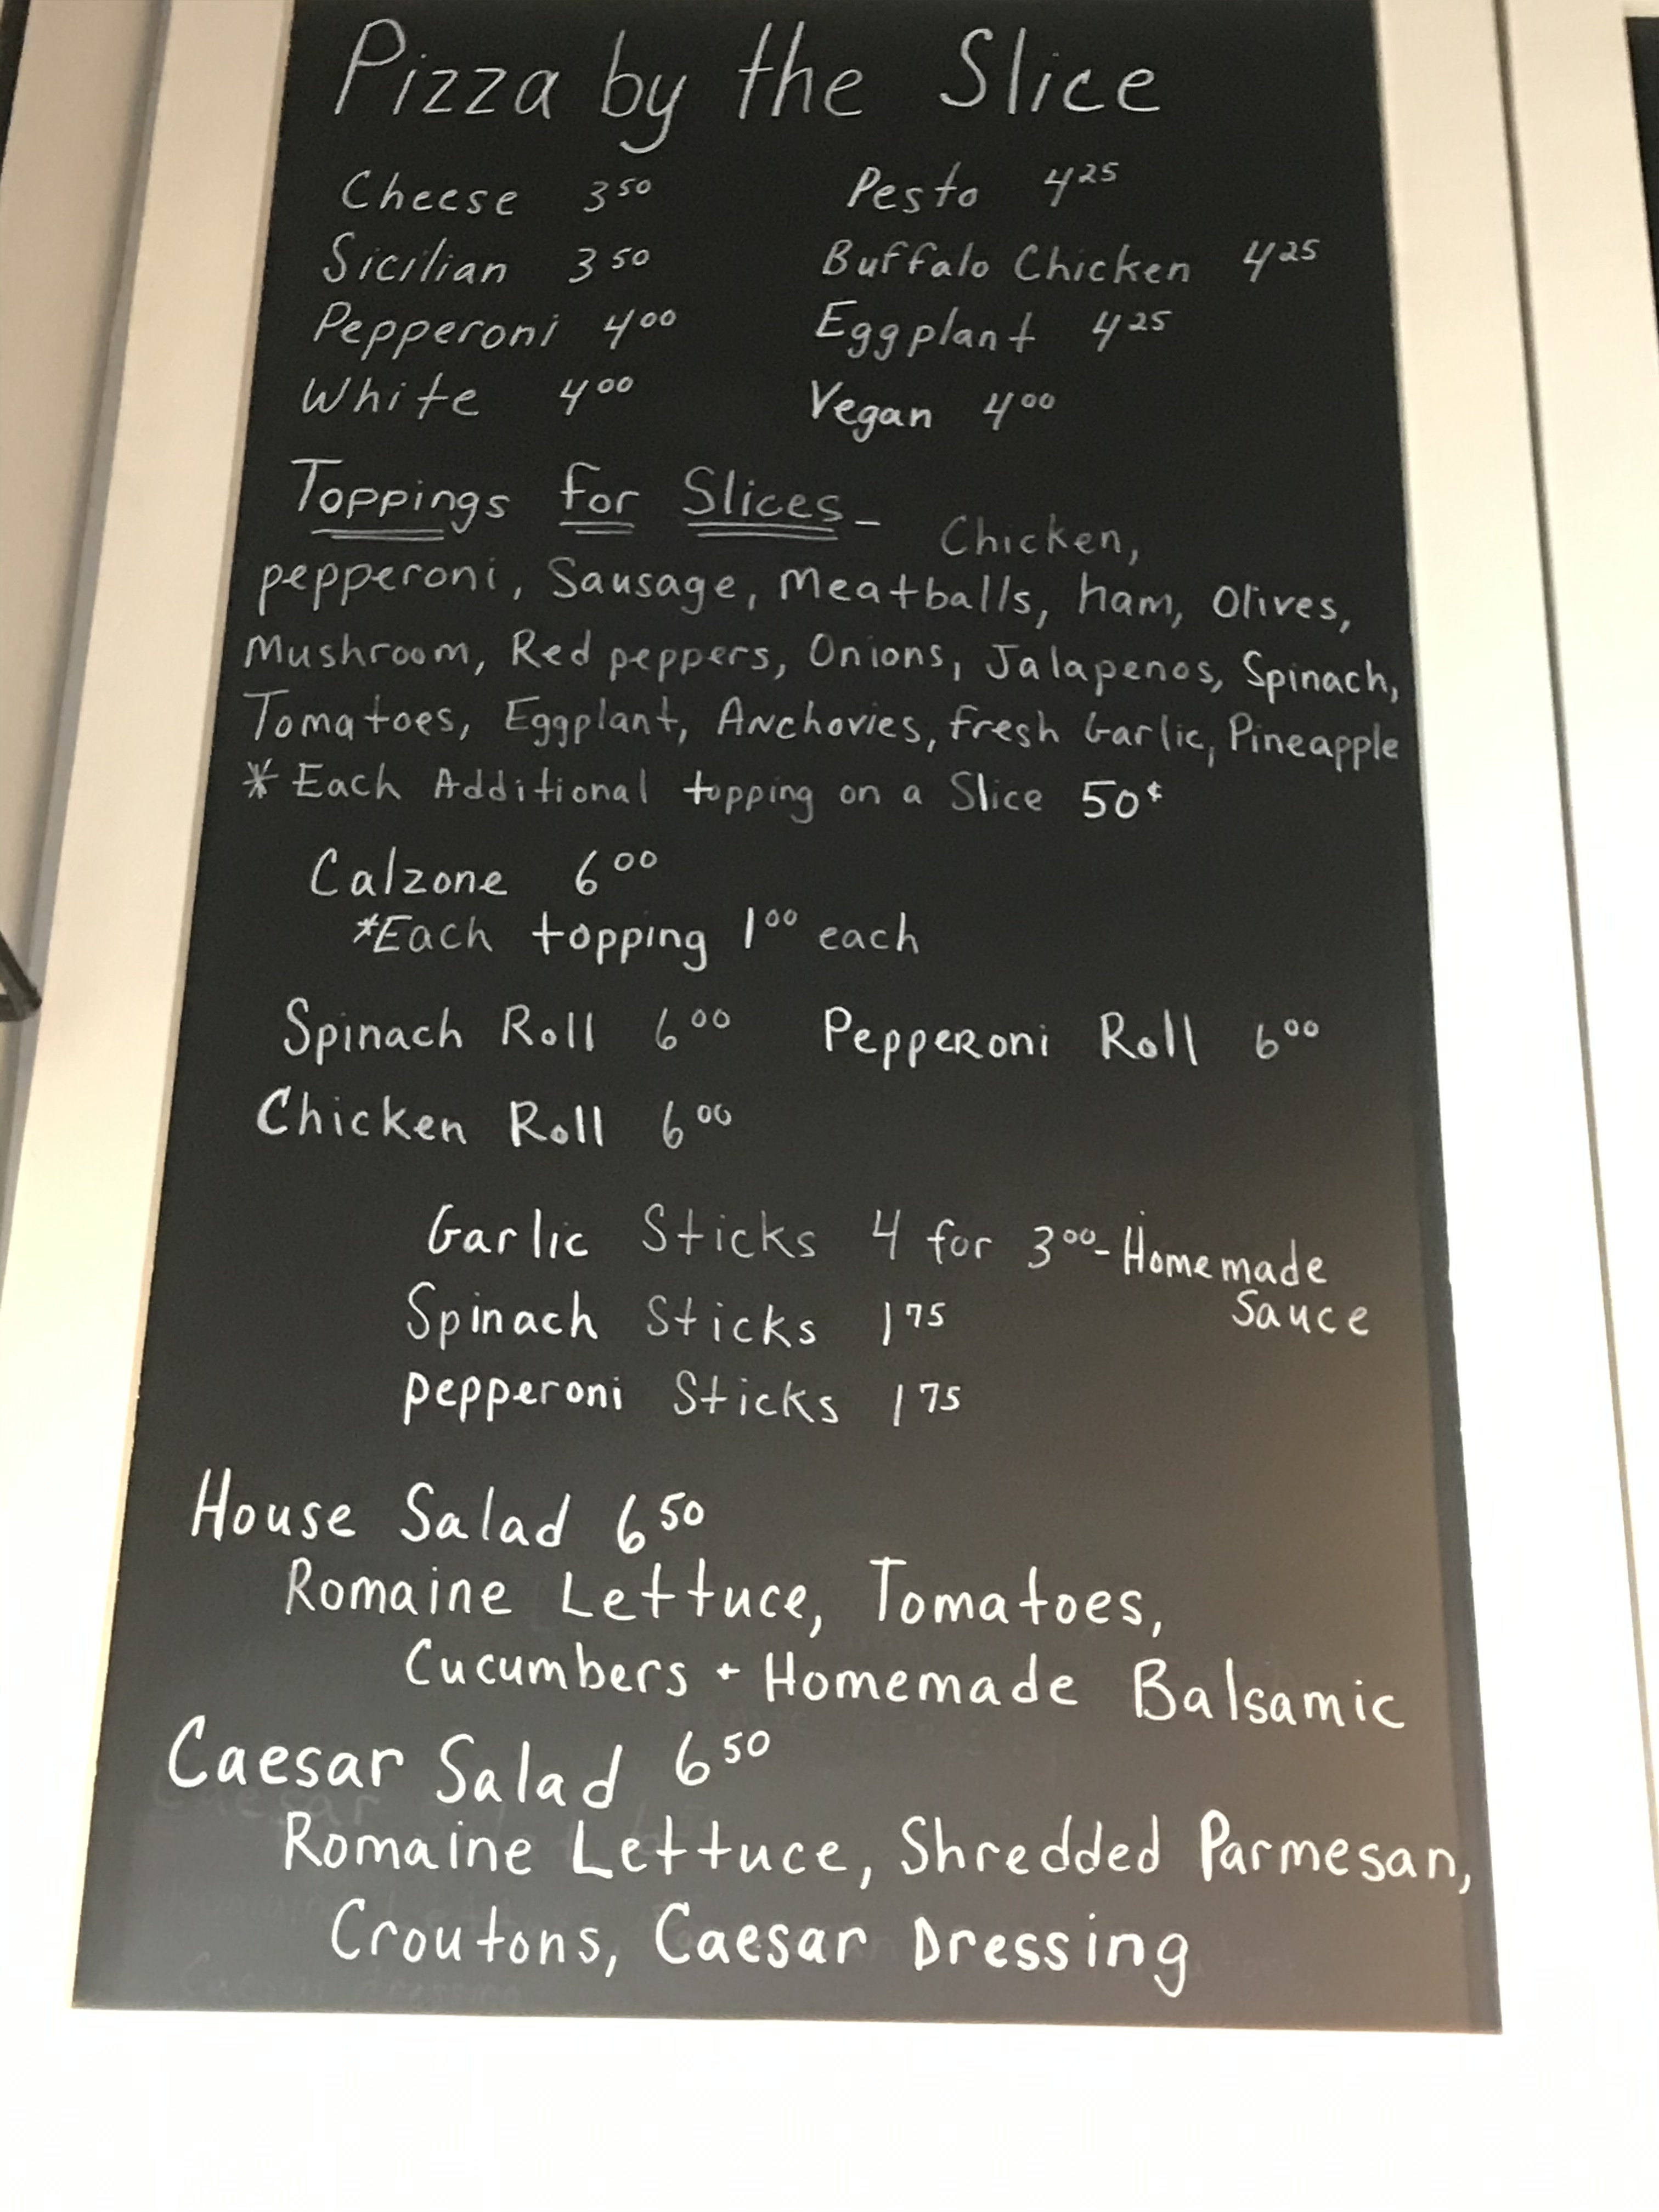 Pizza by the Slice
Cheese 3 50 Pesto 4 25
Sicilian 3 50 Buffalo Chicken 4 25
Pepperoni 4 00 Eggplant 4 25
White 4 00 Vegan 4 00
Toppings for Slices- Chicken,
pepperoni, Sausage, Meatballs, ham, Olives,
Mushroom, Red peppers, Onions, Jalapenos, Spinach,
Tomatoes, Eggplant, Anchovies, fresh Garlic, Pineapple
* Each Additional topping on a Slice 50¢
Calzone 6 00
*Each topping 1 00 each
Spinach Roll 6 00 Pepperoni Roll 6 00
Chicken Roll 6 00
Garlic Sticks 4 for 3 00 - Homemade
Sauce
Spinach Sticks 1 75
pepperoni Sticks 1 75
House Salad 6 50
Romaine Lettuce, Tomatoes,
Cucumbers + Homemade Balsamic
Caesar Salad 6 50
Romaine Lettuce, Shredded Parmesan,
Croutons, Caesar Dressing